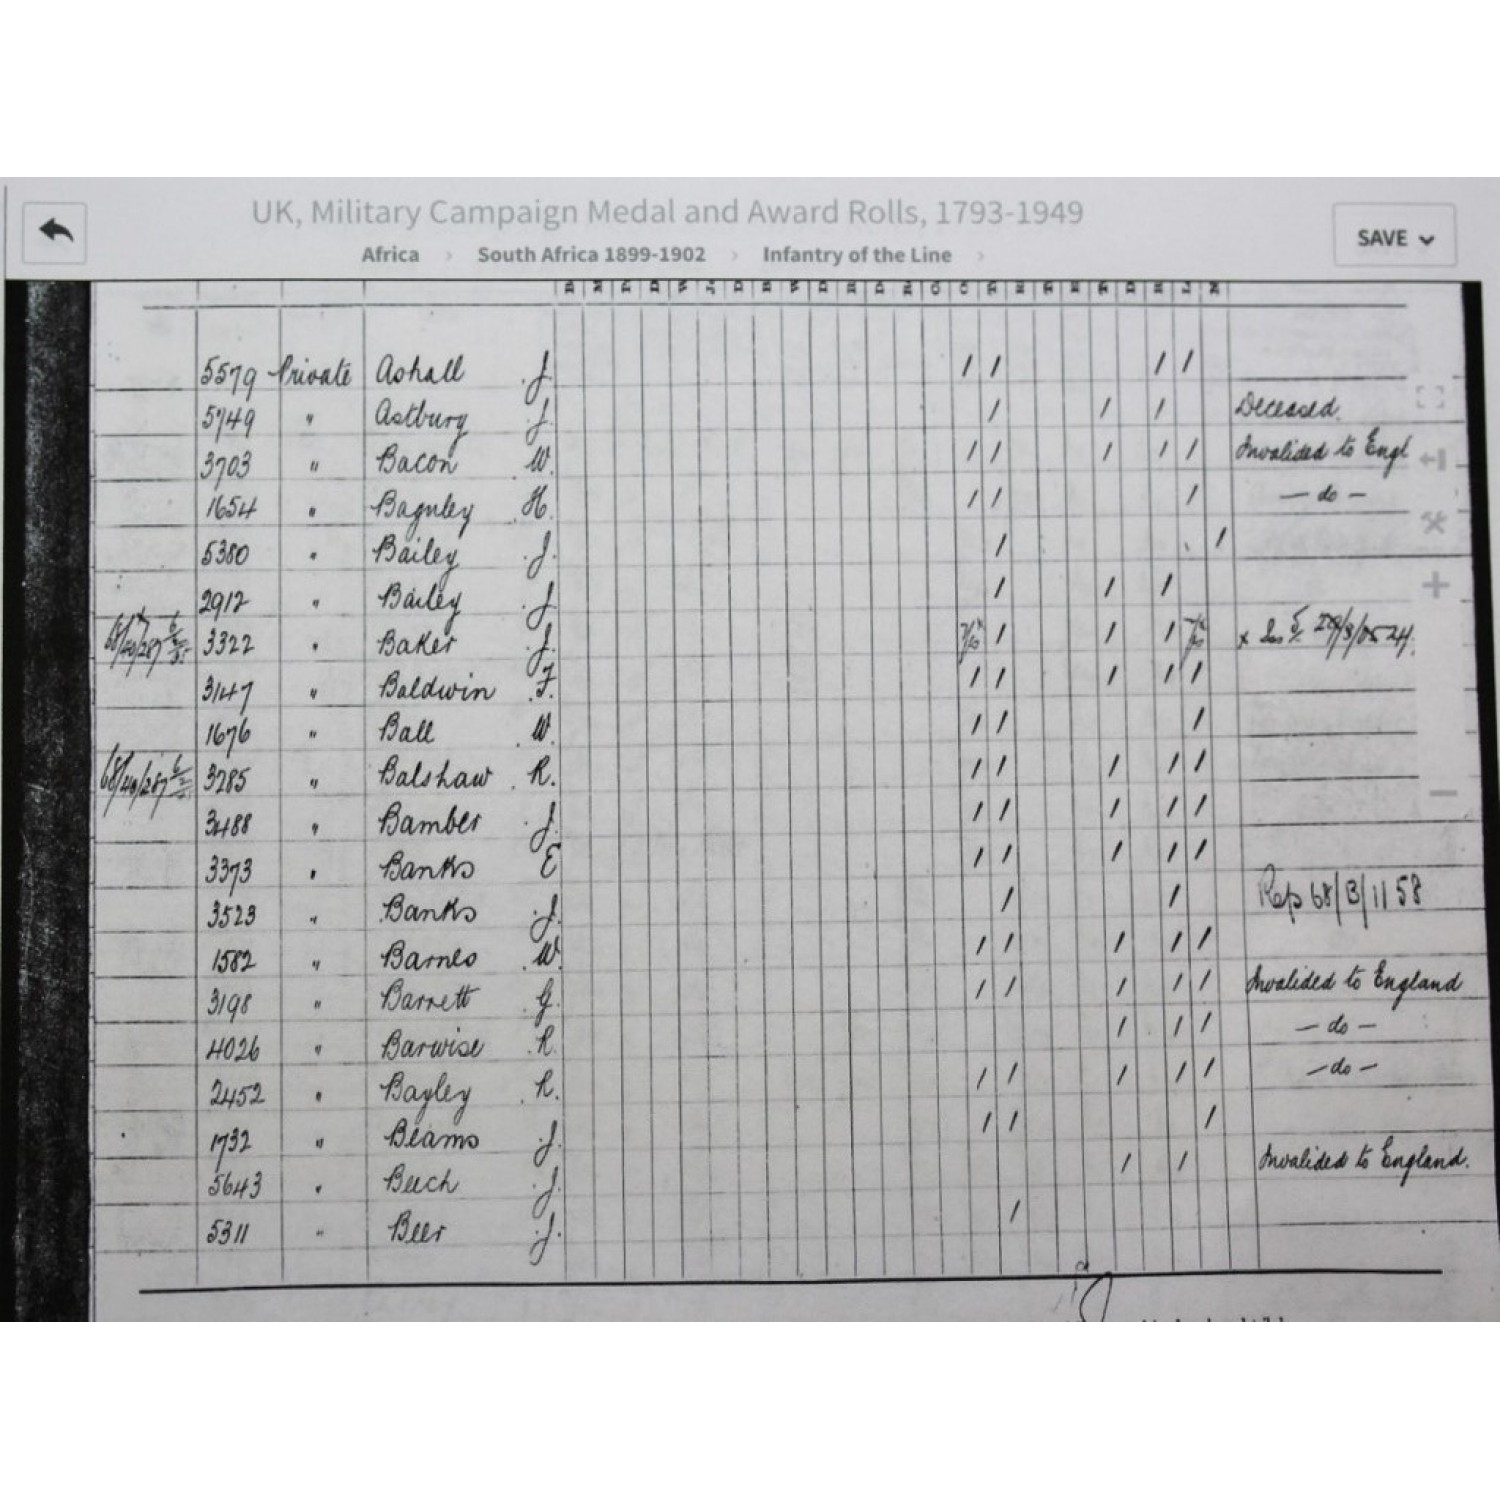 UK, Military Campaign Medal and Award Rolls, 1793-1949
SAVE
Africa > South Africa 1899-1902 > Infantry of the Line >
5579 Private Ashall J / / / /
5749 " Astbury J. / / / Deceased.
3703 " Bacon W. / / / / / Invalided to Engl
1654 " Bagnley H. / / / — do —
5380 " Bailey J. / /
2912 " Bailey J / / /
3322 " Baker J. / / /
3147 " Baldwin F. / / / / /
1676 " Ball W. / / /
68/40/287 3285 " Balshaw R. / / / / /
3488 " Bamber J. / / / / /
3373 " Banks E / / / / /
3523 " Banks J. / / Rep 68/B/1158
1582 " Barnes W. / / / / /
3198 " Barrett G. / / / / / Invalided to England
4026 " Barwise R. / / / — do —
2452 " Bayley R. / / / / / — do —
1732 " Beams J. / / /
5643 " Beech J. / / Invalided to England.
5311 " Beer J. /